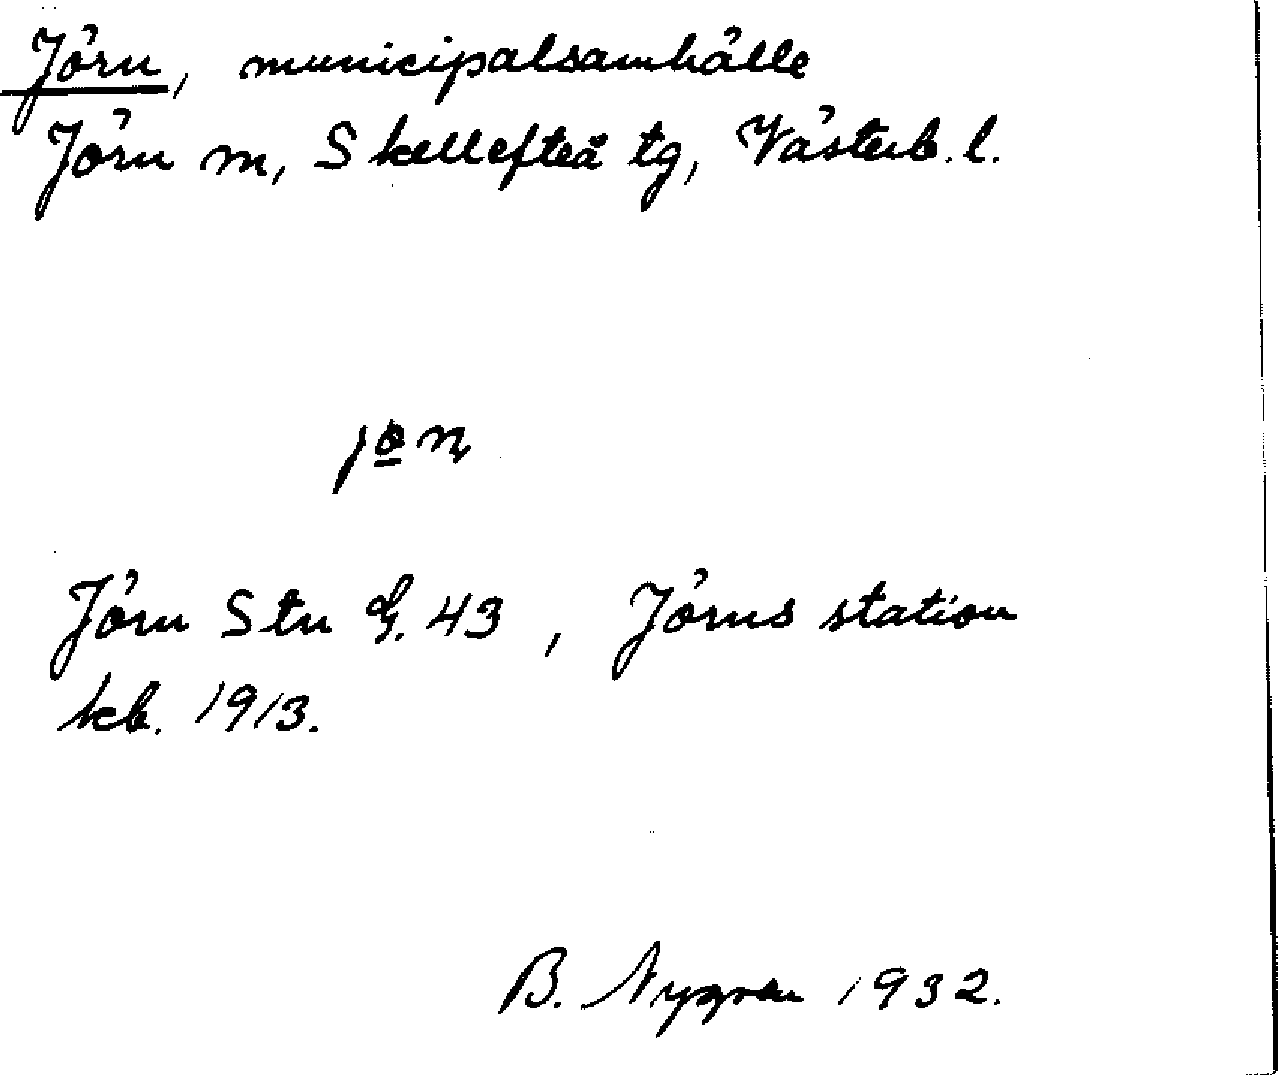 Jörn, municipalsamhälle
Jörn m, Skellefteå tg, Västerb. l.
Jörn Stn G. 43, Jörns station
kb. 1913.
B. Nygren 1932.